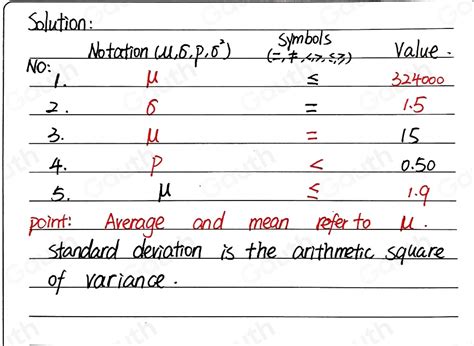 Solution:
Notation (μ,σ,p,σ²) symbols (=,≠,<,>,≤,≥) Value.
NO:
1. μ ≤ 324000
2. σ = 1.5
3. μ = 15
4. p < 0.50
5. μ ≤ 1.9
point: Average and mean refer to μ.
standard deviation is the arithmetic square
of variance.